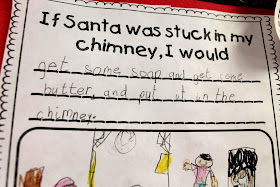 If Santa was stuck in my
chimney, I would
get some soap and get some
butter and put it in the
chimney.